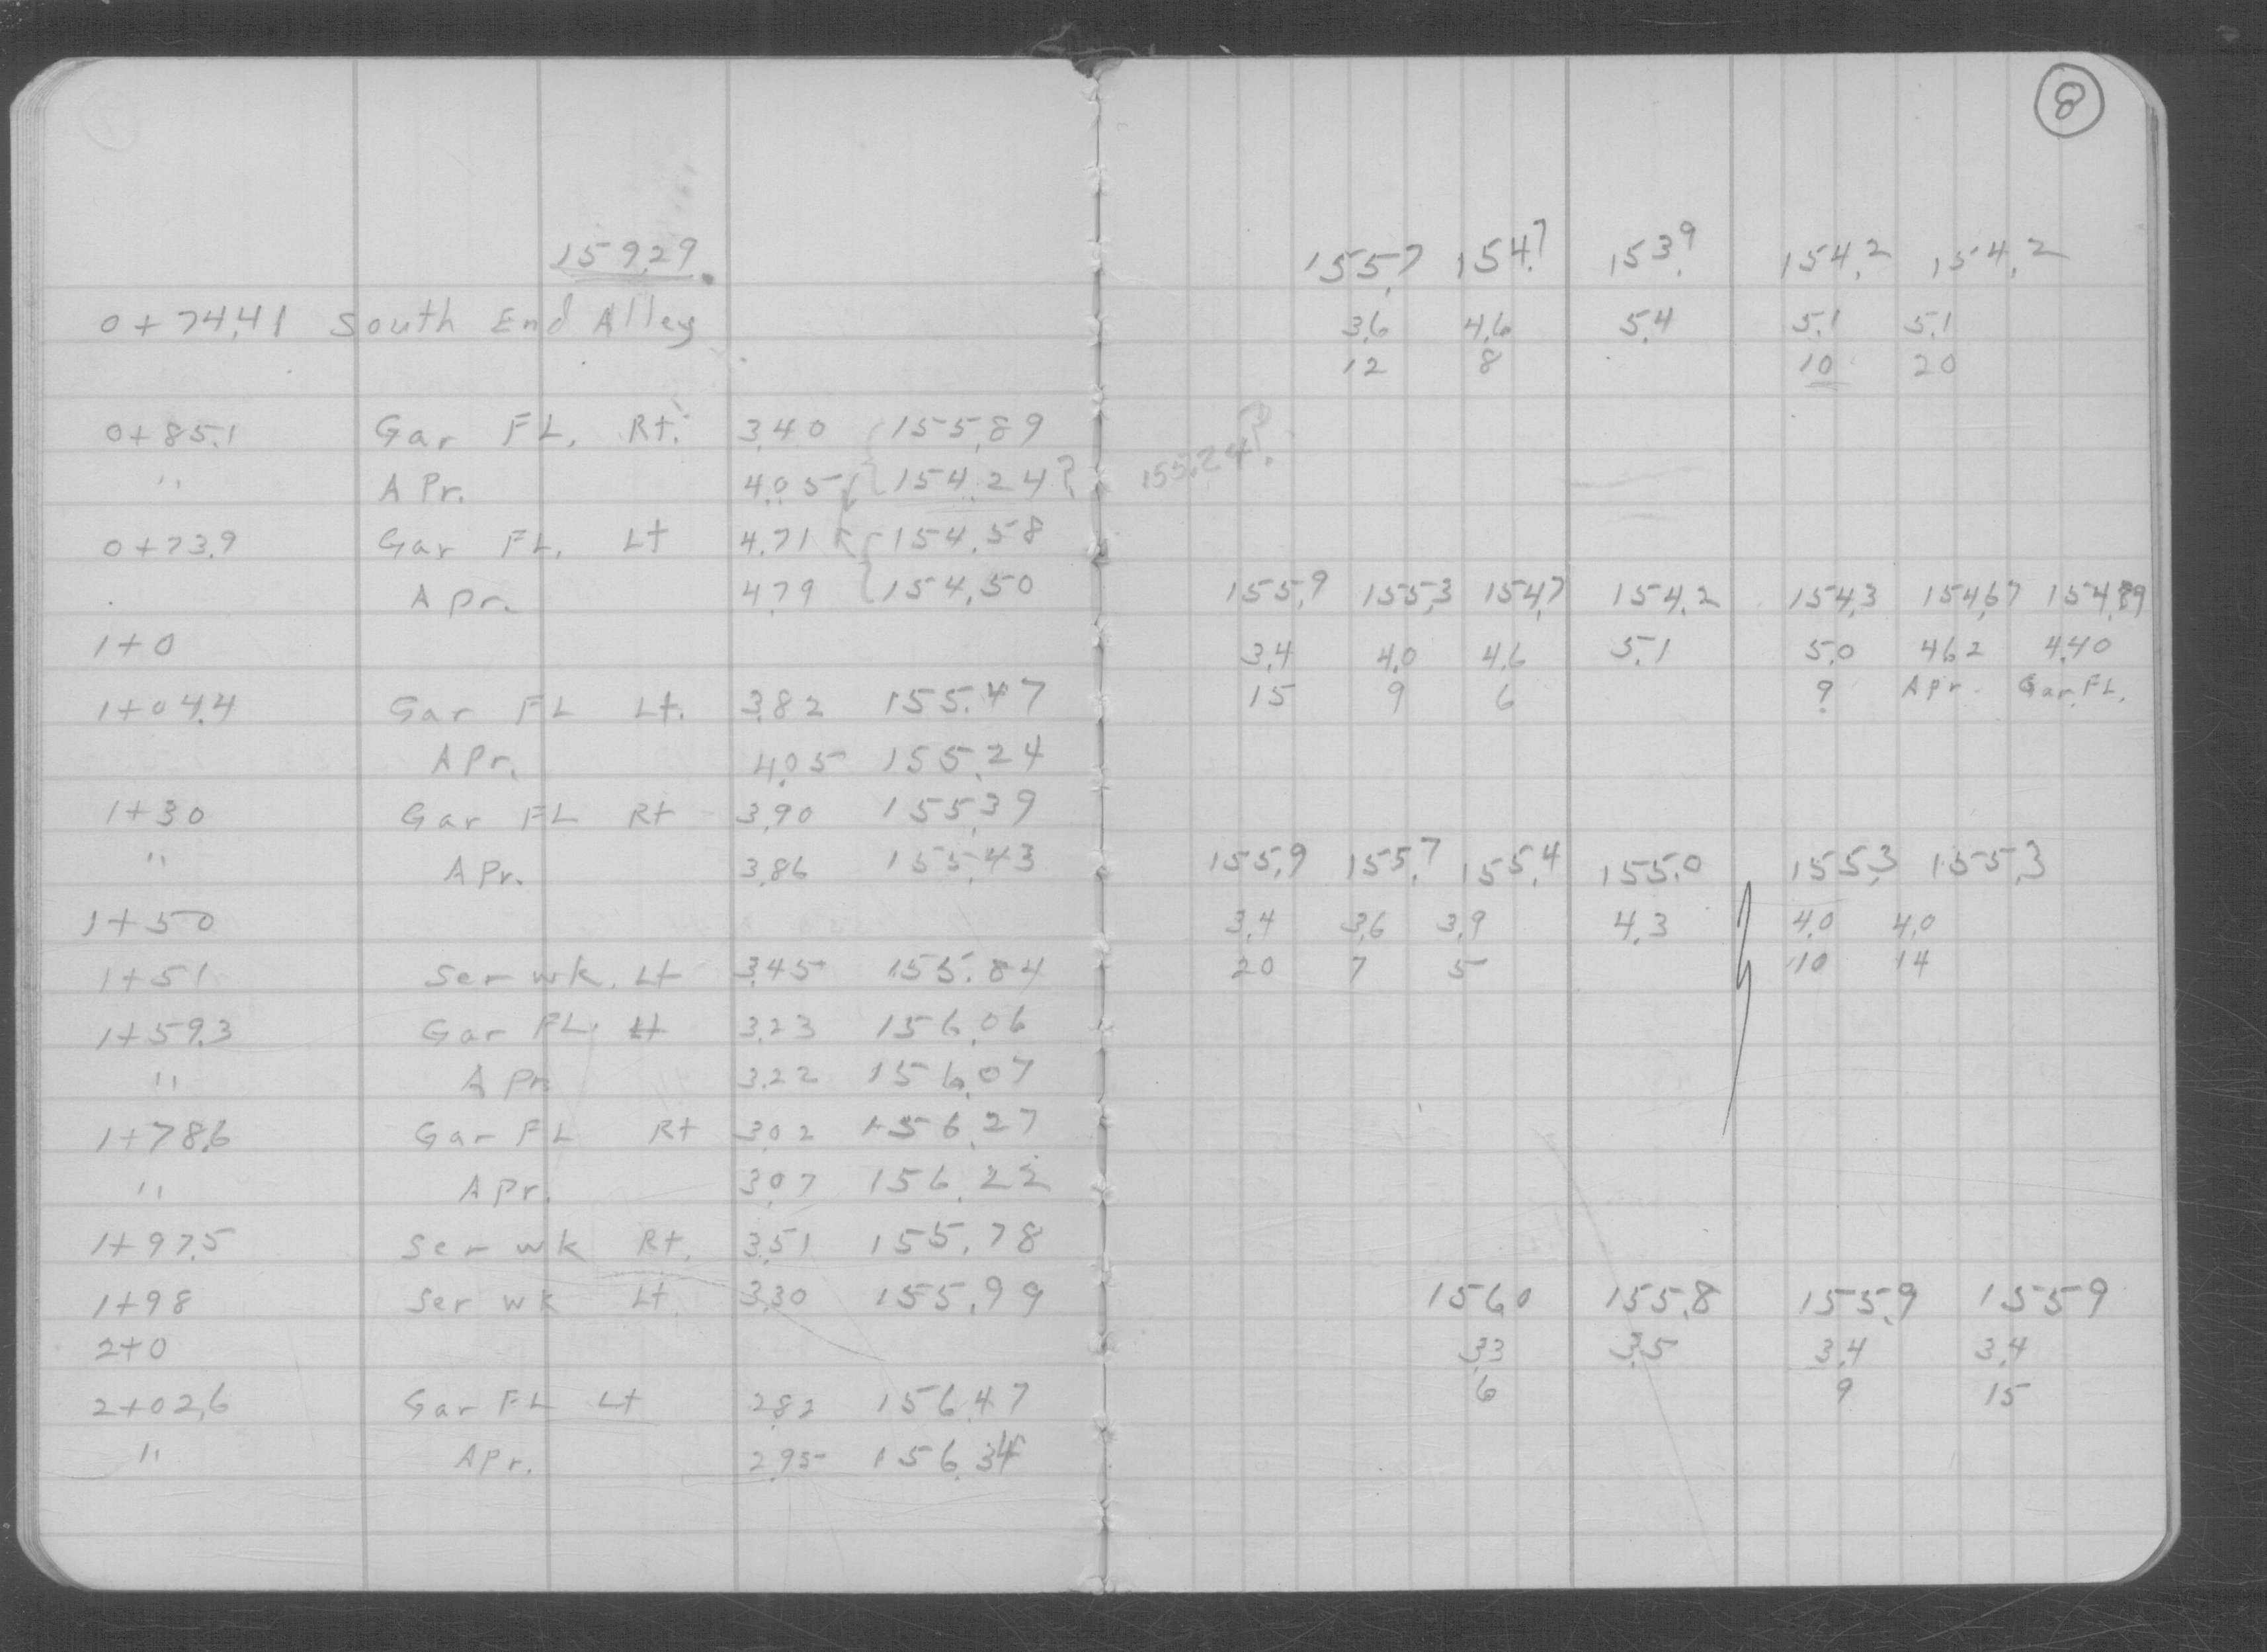 159.29
0+74.41 South End Alley
0+85.1 Gar FL. Rt. 3.40 155.89
" APr. 4.05 154.24?
0+73.9 Gar FL. Lt 4.71 154.58
Apr. 4.79 154.50
1+0
1+04.4 Gar FL Lt. 3.82 155.47
APr. 4.05 155.24
1+30 Gar FL Rt 3.90 155.39
" APr. 3.86 155.43
1+50
1+51 Ser wk. Lt 3.45 155.84
1+59.3 Gar FL. Lt 3.23 156.06
" APr. 3.22 156.07
1+78.6 Gar FL Rt 3.02 156.27
" Apr. 3.07 156.22
1+97.5 Ser wk Rt. 3.51 155.78
1+98 Ser wk Lt 3.30 155.99
2+0
2+02.6 Gar FL Lt 2.82 156.47
" APr. 2.95 156.34
8
155.7 154.7 153.9 154.2 154.2
3.6 4.6 5.4 5.1 5.1
12 8 10 20
155.24?
155.9 155.3 154.7 154.2 154.3 154.67 154.89
3.4 4.0 4.6 5.1 5.0 4.62 4.40
15 9 6 9 Apr. Gar. FL.
155.9 155.7 155.4 155.0 155.3 155.3
3.4 3.6 3.9 4.3 4.0 4.0
20 7 5 10 14
156.0 155.8 155.9 155.9
3.3 3.5 3.4 3.4
6 9 15